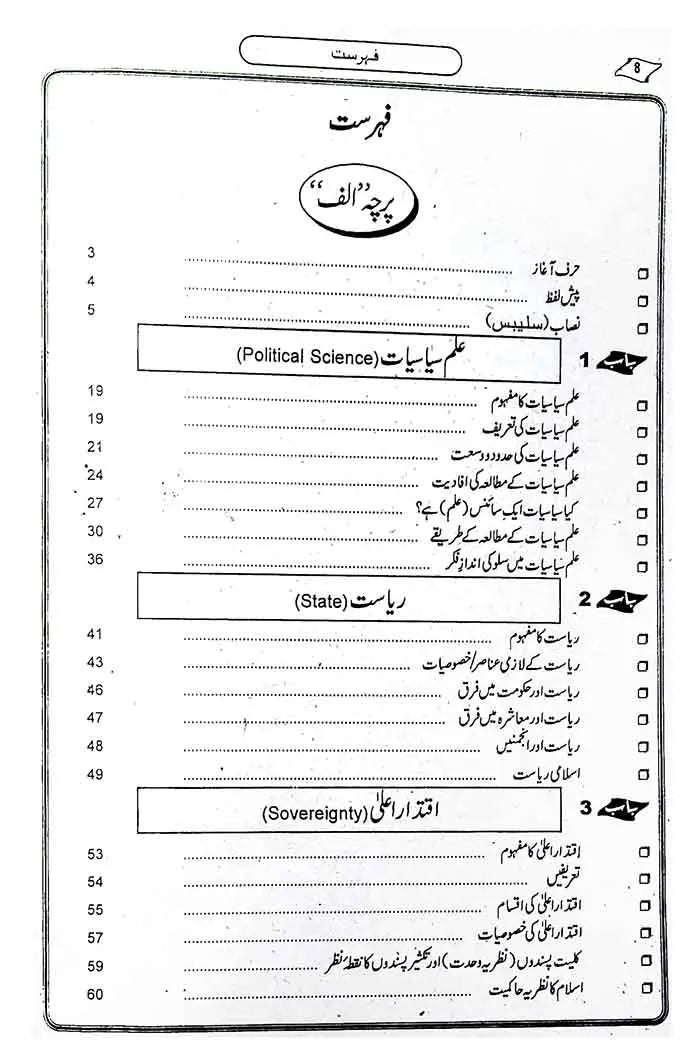 فہرست
8
فہرست
پرچہ ”الف“
حرف آغاز 3
پیش لفظ 4
نصاب (سلیبس) 5
باب 1 علم سیاسیات (Political Science)
علم سیاسیات کا مفہوم 19
علم سیاسیات کی تعریف 19
علم سیاسیات کی حدود و وسعت 21
علم سیاسیات کے مطالعہ کی افادیت 24
کیا سیاسیات ایک سائنس (علم) ہے؟ 27
علم سیاسیات کے مطالعہ کے طریقے 30
علم سیاسیات میں سلوکی اندازِ فکر 36
باب 2 ریاست (State)
ریاست کا مفہوم 41
ریاست کے لازمی عناصر/خصوصیات 43
ریاست اور حکومت میں فرق 46
ریاست اور معاشرہ میں فرق 47
ریاست اور انجمنیں 48
اسلامی ریاست 49
باب 3 اقتدار اعلیٰ (Sovereignty)
اقتدار اعلیٰ کا مفہوم 53
تعریفیں 54
اقتدار اعلیٰ کی اقسام 55
اقتدار اعلیٰ کی خصوصیات 57
کلیت پسندوں (نظریہ وحدت) اور تکثیر پسندوں کا نقطۂ نظر 59
اسلام کا نظریہ حاکمیت 60